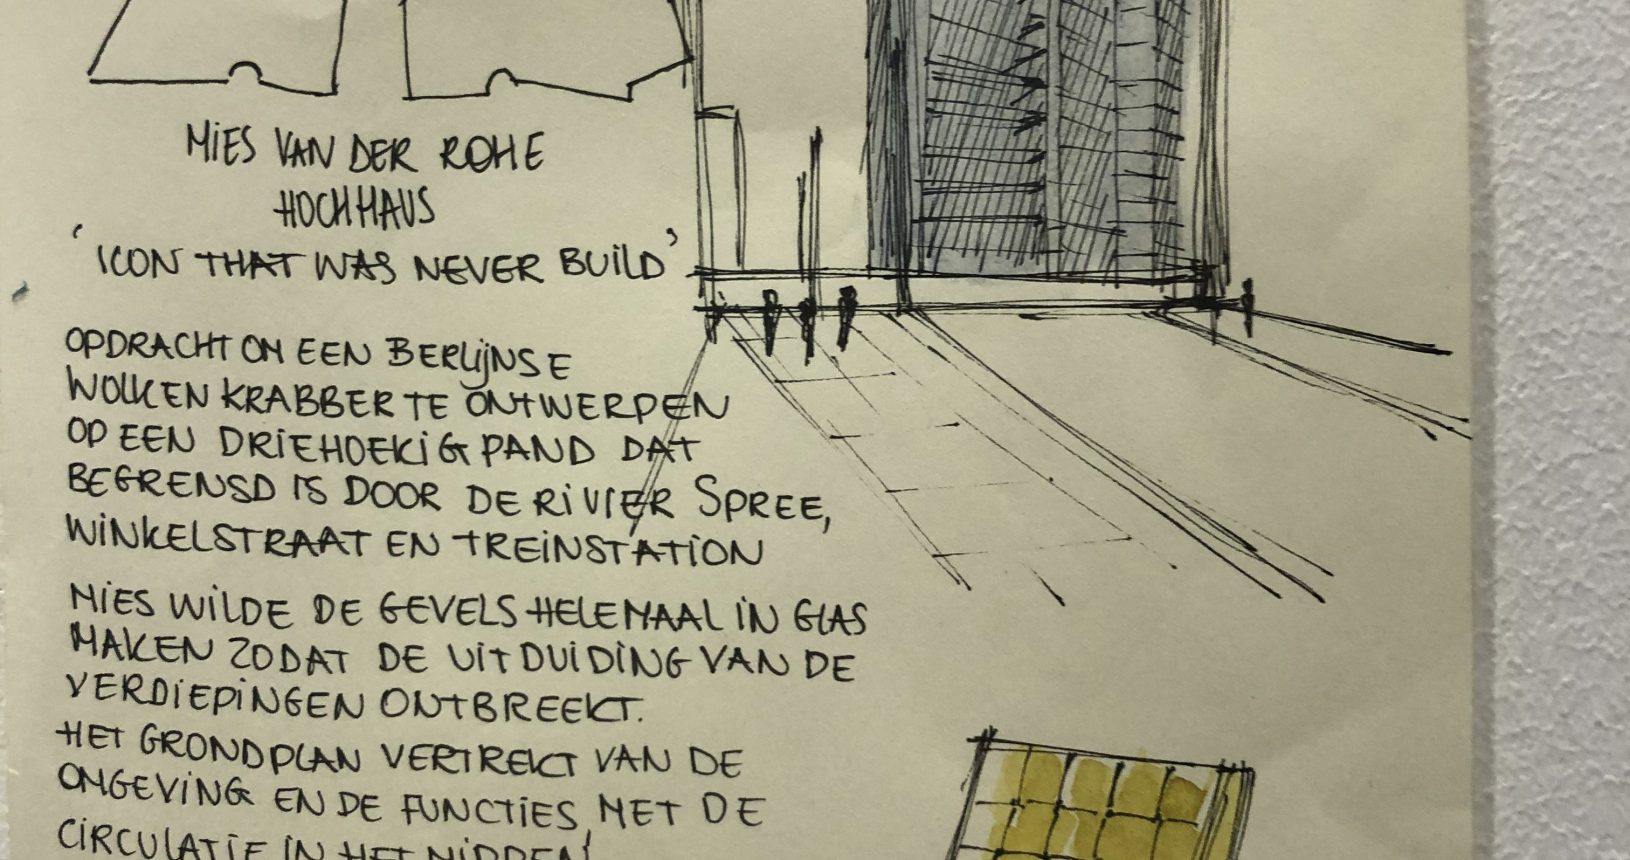 MIES VAN DER ROHE
HOCHHAUS
'ICON THAT WAS NEVER BUILD'
OPDRACHT OM EEN BERLIJNSE
WOLKEN KRABBER TE ONTWERPEN
OP EEN DRIEHOEKIG PAND DAT
BEGRENSD IS DOOR DE RIVIER SPREE,
WINKELSTRAAT EN TREINSTATION
MIES WILDE DE GEVELS HELEMAAL IN GLAS
MAKEN ZODAT DE UITDUIDING VAN DE
VERDIEPINGEN ONTBREEKT.
HET GRONDPLAN VERTREKT VAN DE
OMGEVING EN DE FUNCTIES, MET DE
CIRCULATIE IN HET MIDDEN!